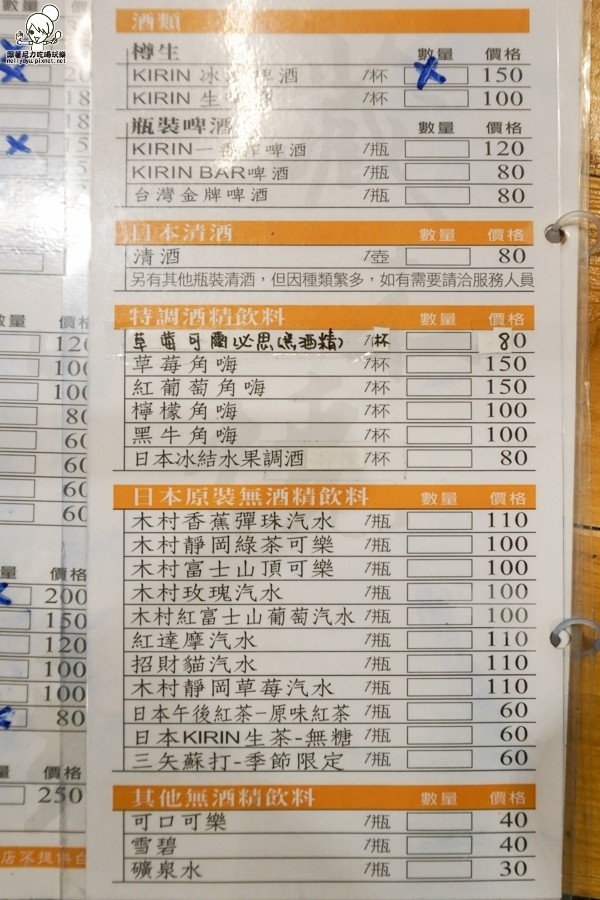 跟著尼力吃喝玩樂
nellydyu.pixnet.net
酒類
樽生 數量 價格
KIRIN 冰 啤酒 1杯 150
KIRIN 生啤酒 1杯 100
瓶裝啤酒 數量 價格
KIRIN一番搾啤酒 1瓶 120
KIRIN BAR啤酒 1瓶 80
台灣金牌啤酒 1瓶 80
日本清酒 數量 價格
清酒 1壺 80
另有其他瓶裝清酒，但因種類繁多，如有需要請洽服務人員
特調酒精飲料 數量 價格
草莓可爾必思(無酒精) 1杯 80
草莓角嗨 1杯 150
紅葡萄角嗨 1杯 150
檸檬角嗨 1杯 100
黑牛角嗨 1杯 100
日本冰結水果調酒 1杯 80
日本原裝無酒精飲料 數量 價格
木村香蕉彈珠汽水 1瓶 110
木村靜岡綠茶可樂 1瓶 100
木村富士山頂可樂 1瓶 100
木村玫瑰汽水 1瓶 100
木村紅富士山葡萄汽水 1瓶 100
紅達摩汽水 1瓶 110
招財貓汽水 1瓶 110
木村靜岡草莓汽水 1瓶 110
日本午後紅茶-原味紅茶 1瓶 60
日本KIRIN生茶-無糖 1瓶 60
三矢蘇打-季節限定 1瓶 60
其他無酒精飲料 數量 價格
可口可樂 1瓶 40
雪碧 1瓶 40
礦泉水 1瓶 30
數量 價格
120
100
100
80
60
60
60
60
量 價格
200
150
120
100
100
80
量 價格
250
店不提供白